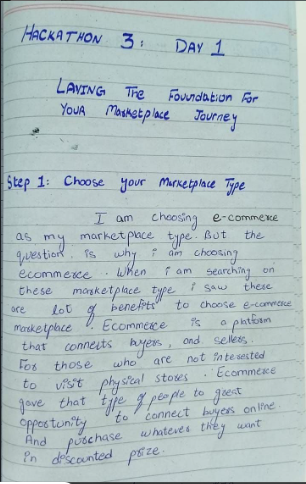 HACKATHON 3: DAY 1
LAYING The Foundation For
YOUR Marketplace Journey
Step 1: Choose your Marketplace Type
I am choosing e-commerce
as my marketplace type. But the
question. is why i am choosing
ecommerce. When i am searching on
these marketplace type i saw there
are lot of benefits to choose e-commerce
marketplace. Ecommerce is a platform
that connects buyers, and sellers.
For those who are not interested
to visit physical stores. Ecommerce
gave that type of people to great
opportunity to connect buyers online
And purchase whatever they want
in discounted prize.